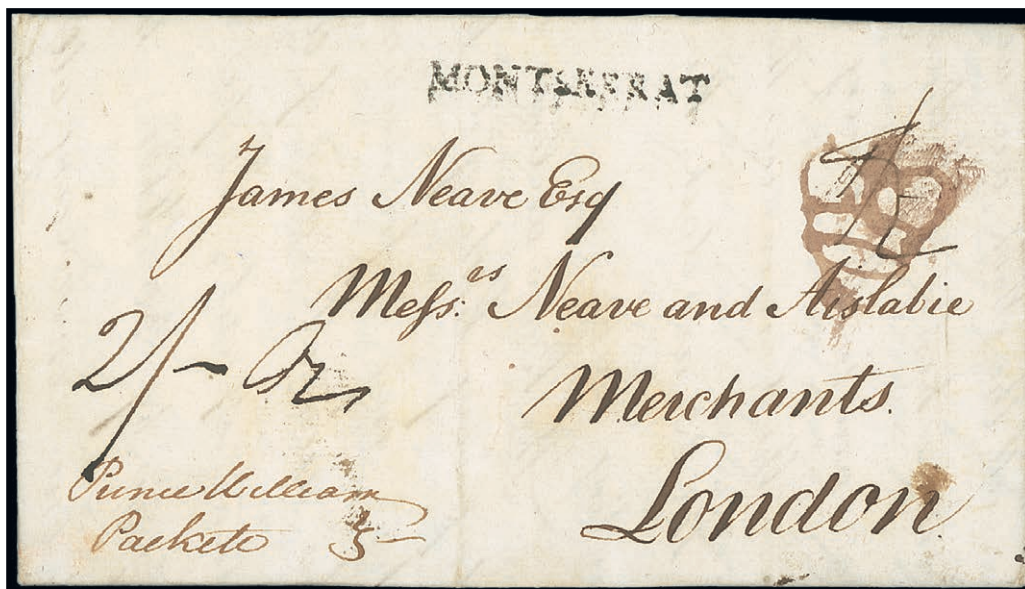 MONTSERRAT
James Neave Esq
Mefs.rs Neave and Aislabie
2/-
Merchants.
London
Prince William
Packete